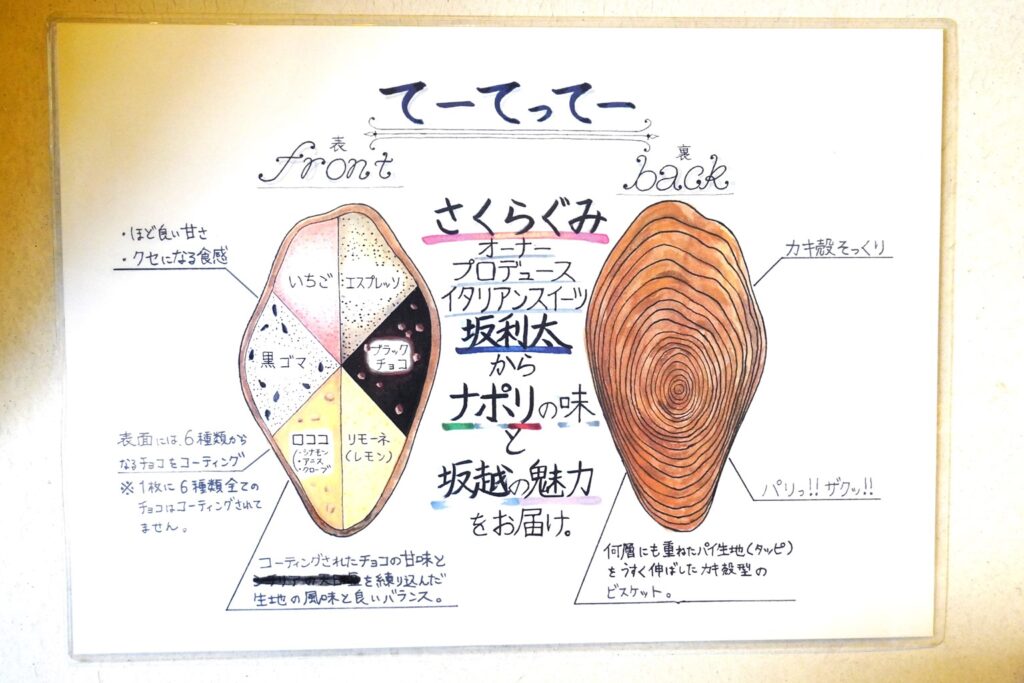 てーてってー
表
front
裏
back
・ほど良い甘さ
・クセになる食感
いちご
エスプレッソ
黒ゴマ
ブラック
チョコ
ロココ
(・シナモン
・アニス
・クローブ)
リモーネ
(レモン)
表面には、6種類から
なるチョコをコーティング
※1枚に6種類全ての
チョコはコーティングされて
ません。
コーティングされたチョコの甘味と
を練り込んだ
生地の風味と良いバランス。
さくらぐみ
オーナー
プロデュース
イタリアンスイーツ
坂利太
から
ナポリの味
と
坂越の魅力
をお届け。
カキ殻そっくり
パリっ!!ザクッ!!
何層にも重ねたパイ生地(タッピ)
をうすく伸ばしたカキ殻型の
ビスケット。